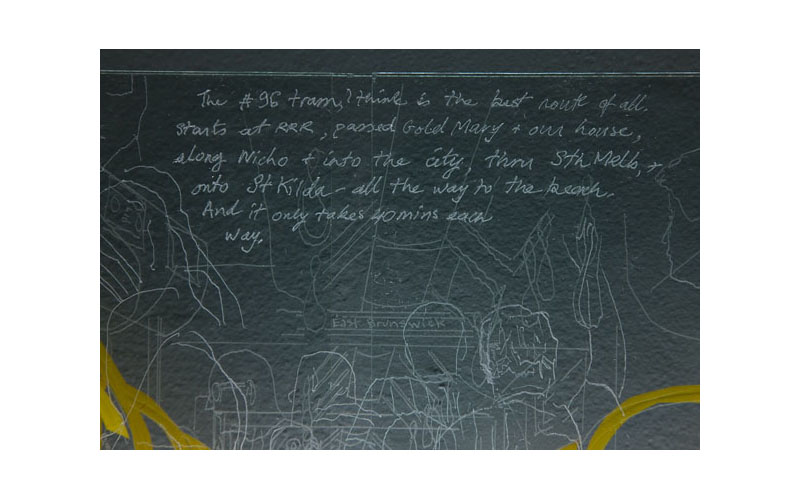 The #96 tram, I think is the best route of all.
Starts at RRR, passed Gold Mary + our house,
along Nicho + into the city, thru Sth Melb, +
onto St Kilda - all the way to the beach.
And it only takes 40 mins each
way.
East Brunswick